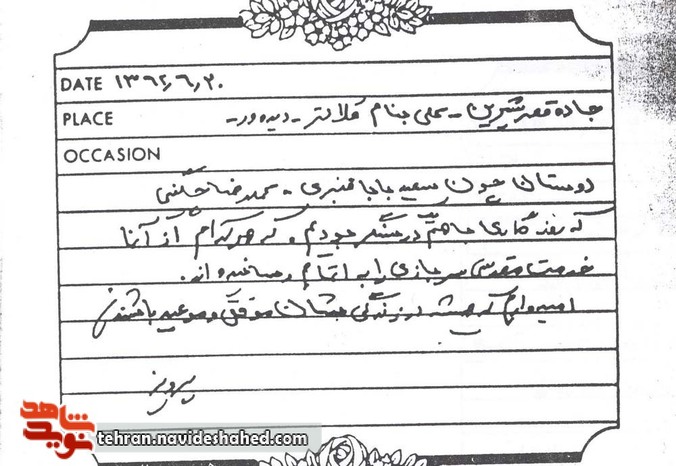 DATE ۱۳۶۲٫۶٫۲۰
PLACE جاده قصرشیرین - محلی بنام کلانتر - دیده ور -
OCCASION
دوستان چون سعید بابا قنبری - محمدرضا
که روزگاری باهم در سنگر بودیم و که هر کدام از آنا
خدمت مقدس سربازی را به اتمام رسانیده اند.
امیدوارم که همیشه در زندگی شان موفق و موید باشند
پرویز
شاهد
نوید
tehran.navideshahed.com